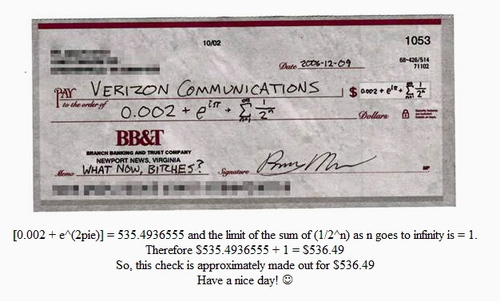 10/02
1053
Date 2006-12-09
68-426/514
71102
PAY to the order of VERIZON COMMUNICATIONS $ 0.002 + e^iπ + ∑_{n=1}^∞ 1/2^n
0.002 + e^iπ + ∑_{n=1}^∞ 1/2^n Dollars
BB&T
BRANCH BANKING AND TRUST COMPANY
NEWPORT NEWS, VIRGINIA
Memo WHAT NOW, BITCHES? Signature
[0.002 + e^(2pie)] = 535.4936555 and the limit of the sum of (1/2^n) as n goes to infinity is = 1.
Therefore $535.4936555 + 1 = $536.49
So, this check is approximately made out for $536.49
Have a nice day! ☺